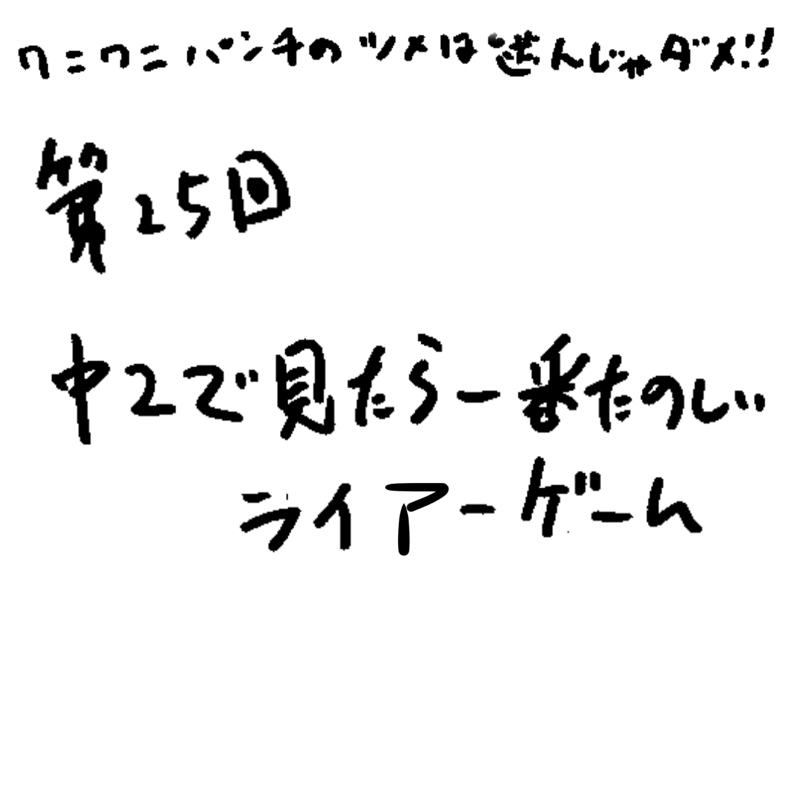 ワニワニパンチのツメは選んじゃダメ!!
第25回
中2で見たら一番たのしい
ライアーゲーム